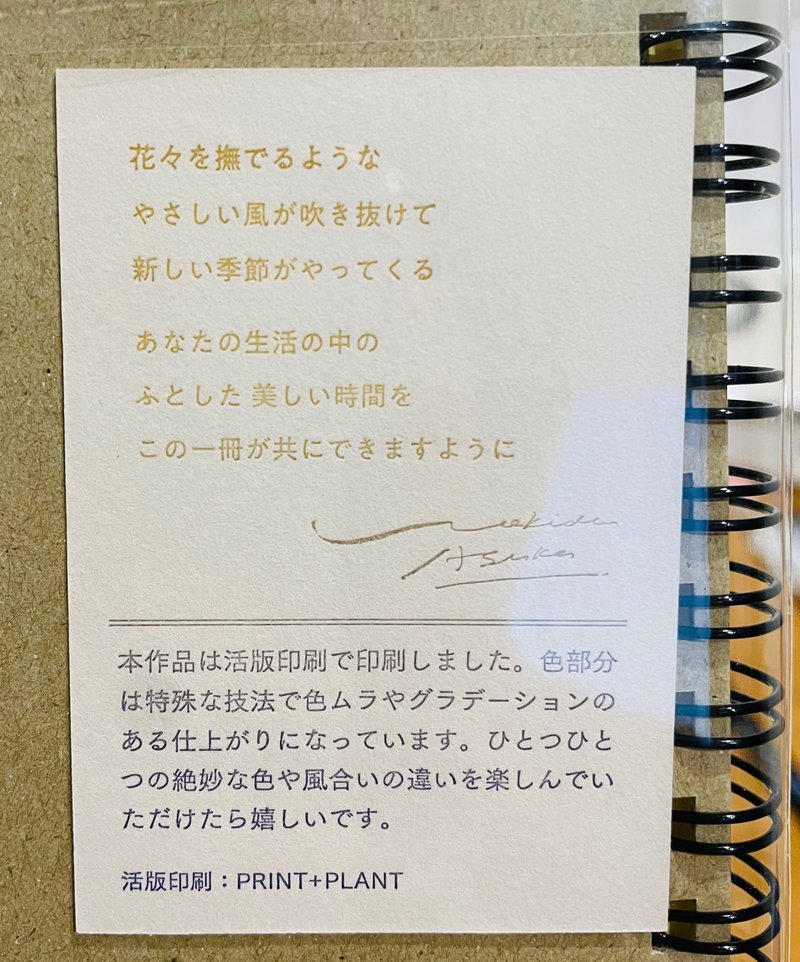 花々を撫でるような
やさしい風が吹き抜けて
新しい季節がやってくる
あなたの生活の中の
ふとした 美しい時間を
この一冊が共にできますように
Asuka
本作品は活版印刷で印刷しました。色部分
は特殊な技法で色ムラやグラデーションの
ある仕上がりになっています。ひとつひと
つの絶妙な色や風合いの違いを楽しんでい
ただけたら嬉しいです。
活版印刷：PRINT+PLANT